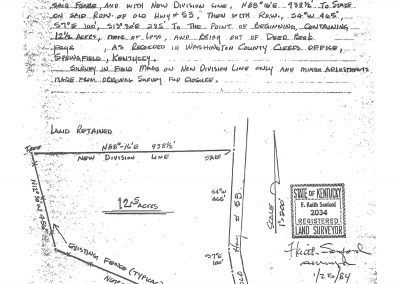 SAID FENCE, AND WITH NEW DIVISION LINE, N88°-16'E 938½' TO STAKE
ON SAID ROW. OF OLD HWY # 53, THEN WITH ROW., S4°W 465',
S7°E 100', S13°30'E 235' TO THE POINT OF BEGINNING CONTAINING
12½ ACRES, MORE OR LESS, AND BEING OUT OF DEED BOOK
PAGE , AS RECORDED IN WASHINGTON COUNTY CLERKS OFFICE,
SPRINGFIELD, KENTUCKY.
SURVEY IN FIELD MADE ON NEW DIVISION LINE ONLY AND MINOR ADJUSTMENTS
MADE FROM ORIGINAL SURVEY FOR CLOSURE.
LAND RETAINED
TREE
N88°-16'E 938½'
NEW DIVISION LINE
STAKE
12.5 ACRES
S4°W
S7°E
100'
HWY # 53
OLD
SCALE
1"=200'
EXISTING FENCE (TYPICAL)
STATE OF KENTUCKY
B. Keith Sanford
2034
REGISTERED
LAND SURVEYOR
Keith Sanford
1/25/84